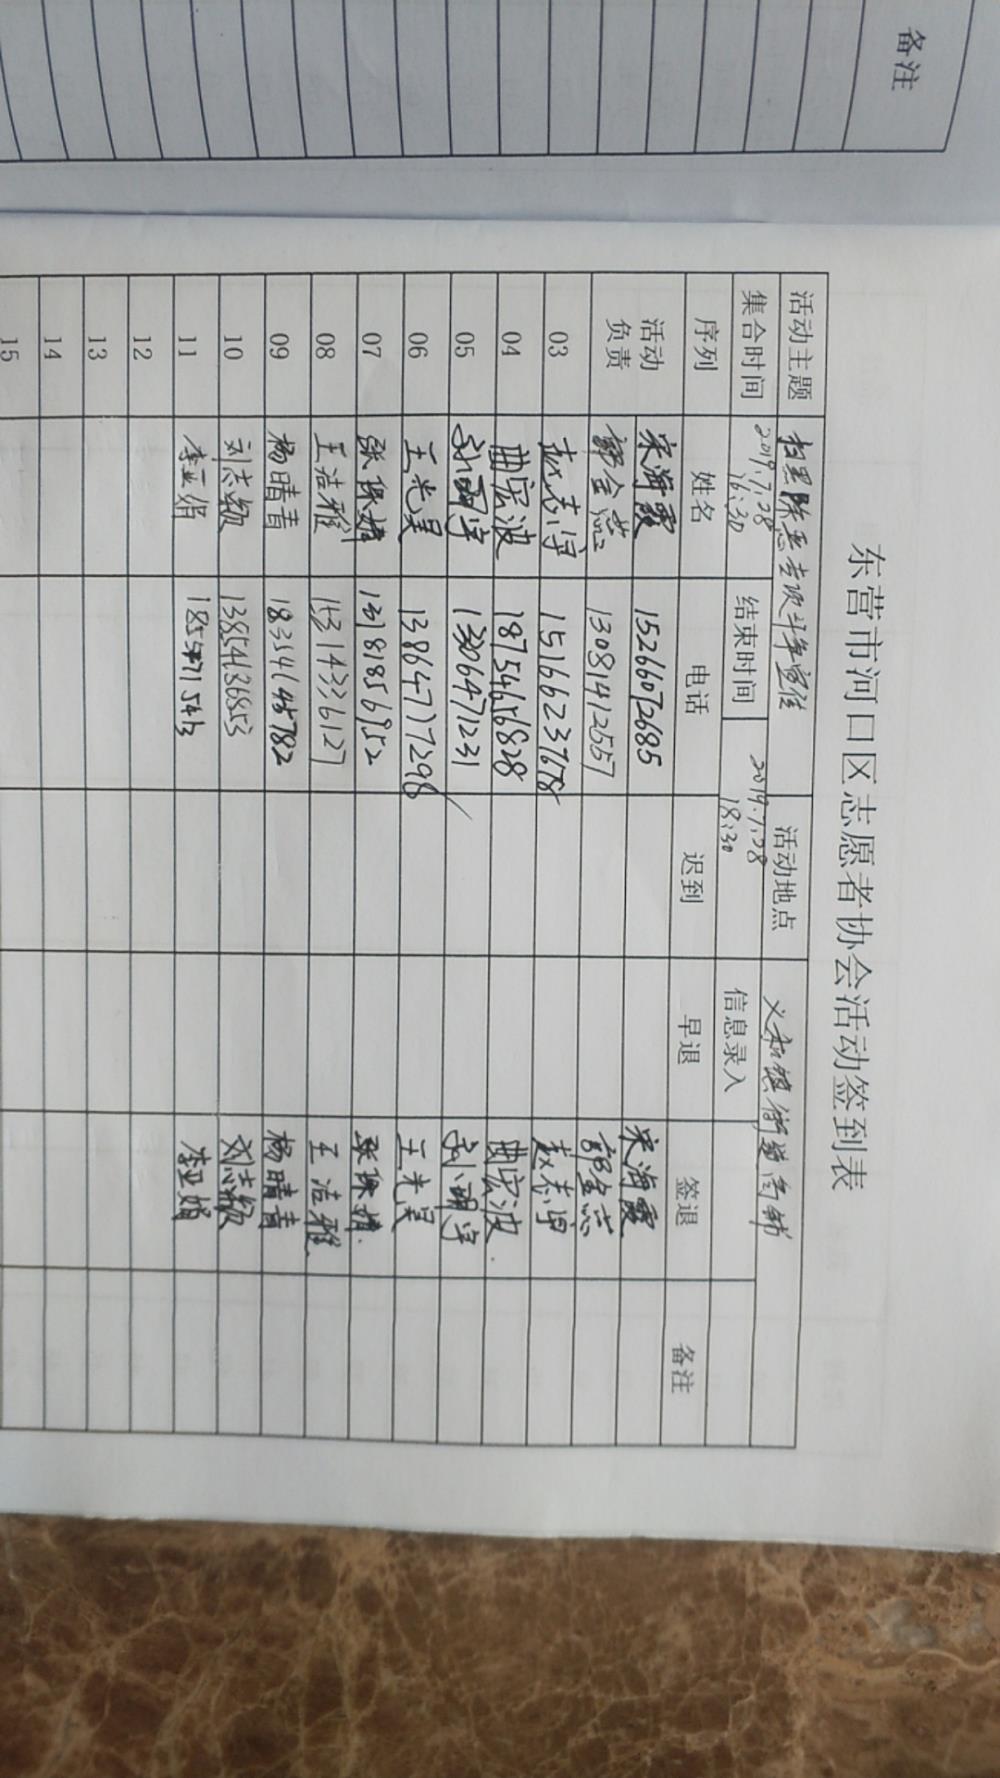 备注
东营市河口区志愿者协会活动签到表
活动主题 扫黑除恶专项斗争宣传 活动地点 义和镇街道商铺
集合时间 2019.7.28 16:30 结束时间 2019.7.28 18:30 信息录入
序列 姓名 电话 迟到 早退 签退 备注
活动负责 宋海霞 15266072685 宋海霞
郭金芯 13081412557 郭金芯
03 赵志宇 15166237678 赵志宇
04 曲宏波 18754656828 曲宏波
05 13306471231
06 王光昊 13864777298 王光昊
07 张保婧 13181856952 张保婧
08 王洁雅 王洁雅
09 杨晴青 18354645782 杨晴青
10 刘志颖 13854636853 刘志颖
11 李亚娟 李亚娟
12
13
14
15